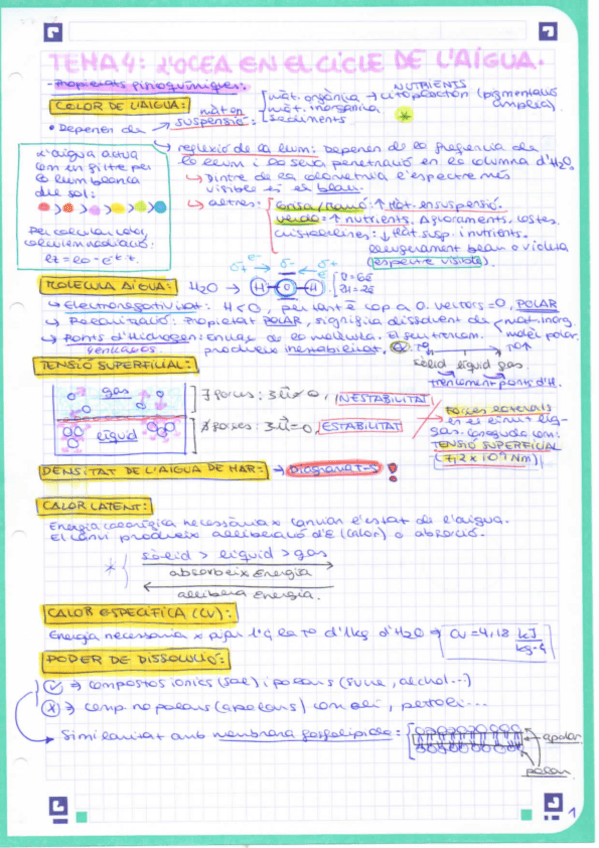 TEMA 4: L'OCEÀ EN EL CICLE DE L'AIGUA.
- Propietats fisicoquímiques:
NUTRIENTS
COLOR DE L'AIGUA:
màt. orgànica → fitoplàncton (pigmentació àmplia).
màt. inorgànica
sediments
• Depenen de → màt en suspensió:
reflexió de la llum: Depenen de la freqüència de
la llum i la seva penetració en la columna d'H2O.
↳ Dintre de la colometria l'espectre més
visible és el blau.
↳ altres:
Groga/Marró: ↑ Màt. en suspensió.
verda: ↑ nutrients. Afloraments, costes.
cristal·lines: ↓ Màt susp. i nutrients.
lleugerament blau o violeta
(espectre visible).
L'aigua actua
com un filtre per
la llum blanca
del sol:
Per calcular color,
calculem radiació:
ez = e0 - e-k·z.
MOLÈCULA D'AIGUA:
H2O →
σ+ e- σ- e- σ+
H O H
O = 6e
2H = 2e
↳ Electronegativitat: H<O, per tant e- cap a O. vectors ≠ 0, POLAR
↳ Focalització: Propietat POLAR, significa dissolvent de màt-inorg.
molèc polar.
↳ Ponts d'Hidrogen: Enllaç de la molècula. El seu trencam.
produeix inestabilitat,
Tº Tº↑
sòlid líquid gas.
trencament ponts d'H.
TENSIÓ SUPERFICIAL:
gas
líquid
∃ forces: Σū ≠ 0, INESTABILITAT
∄ forces: Σū = 0, ESTABILITAT
Forces laterals
en el límit líq-
gas. Coneguda com:
TENSIÓ SUPERFICIAL
(7,2 x 10^9 N/m)
DENSITAT DE L'AIGUA DE MAR: → Diagrama T-S !
CALOR LATENT:
Energia calorífica necessària x canviar l'estat de l'aigua.
El canvi produeix alliberació d'E (calor) o absorció.
* sòlid > líquid > gas
absorbeix Energia
allibera Energia.
CALOR ESPECÍFICA (CV):
Energia necessària x pujar 1ºC la Tº d'1kg d'H2O ⇒ Cv = 4,18 kJ/kg·ºC
PODER DE DISSOLUCIÓ:
✓ ⇒ compostos iònics (sal) i polars (sucre, alcohol...)
✗ ⇒ comp. no polars (apolars) com oli, petroli...
Similaritat amb membrana fosfolípida:
apolar
polar
1